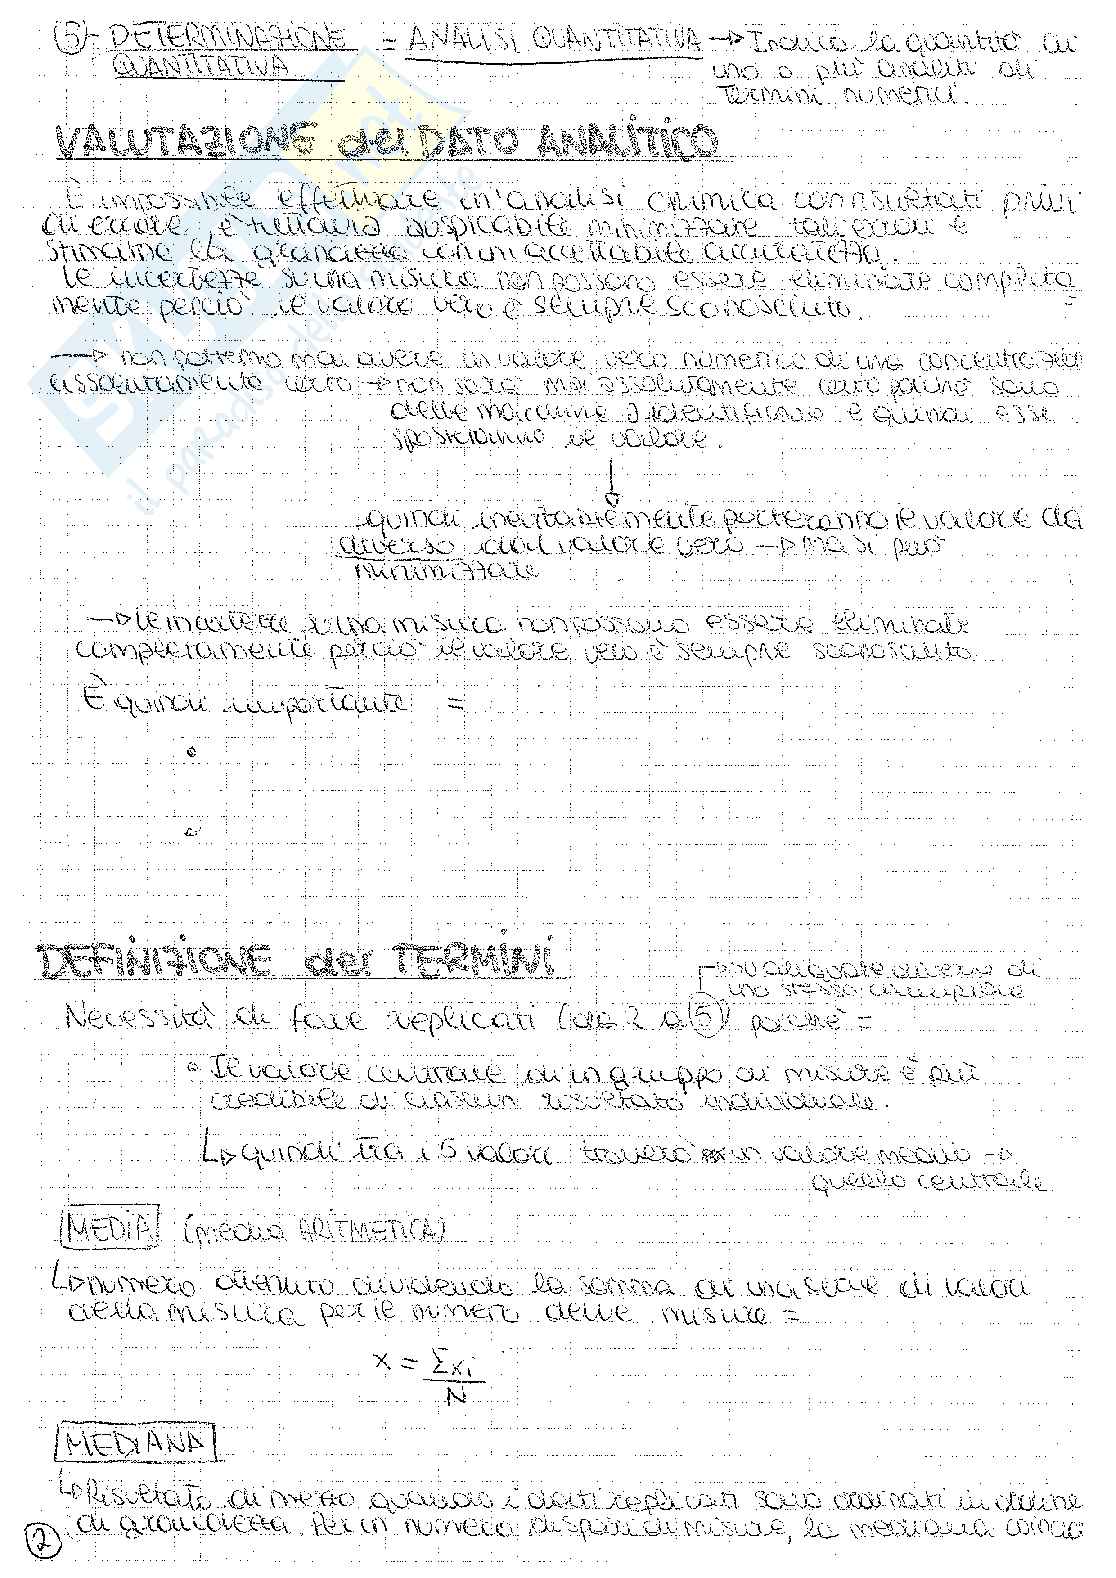 (5)- DETERMINAZIONE = ANALISI QUANTITATIVA → Indica la quantità di
QUANTITATIVA
uno o più analiti di
termini numerici.
VALUTAZIONE del DATO ANALITICO
È impossibile effettuare un'analisi chimica con risultati privi
di errore, è tuttavia auspicabile minimizzare tali errori e
stimarne la grandezza con un accettabile accuratezza.
Le incertezze su una misura non possono essere eliminate completa
mente perciò il valore vero è sempre sconosciuto.
→ non potremo mai avere un valore vero numerico di una concentrazio
assolutamente certo → non sarà mai assolutamente certo poiché sono
delle e quindi esse
sposteranno il valore.
↓
quindi inevitabilmente porteranno il valore da
diverso dal valore vero → ma si può
minimizzare
→ le incertezze su una misura non possono essere eliminate
completamente perciò il valore vero è sempre sconosciuto.
È quindi importante =
•
•
DEFINIZIONE dei TERMINI
→ di
uno stesso campione
Necessità di fare replicati (da 2 a 5) perchè =
• Il valore centrale di un gruppo di misure è più
credibile di ciascun risultato individuale.
↳ quindi tra i 5 valori troverò un valore medio →
quello centrale
MEDIA (media ARITMETICA)
↳ numero ottenuto dividendo la somma di una serie di valori
della misura per il numero delle misure =
x = Σxi
N
MEDIANA
↳ Risultato di mezzo quando i dati replicati sono ordinati in ordine
di grandezza. Per un numero dispari di misure, la mediana coinci
2